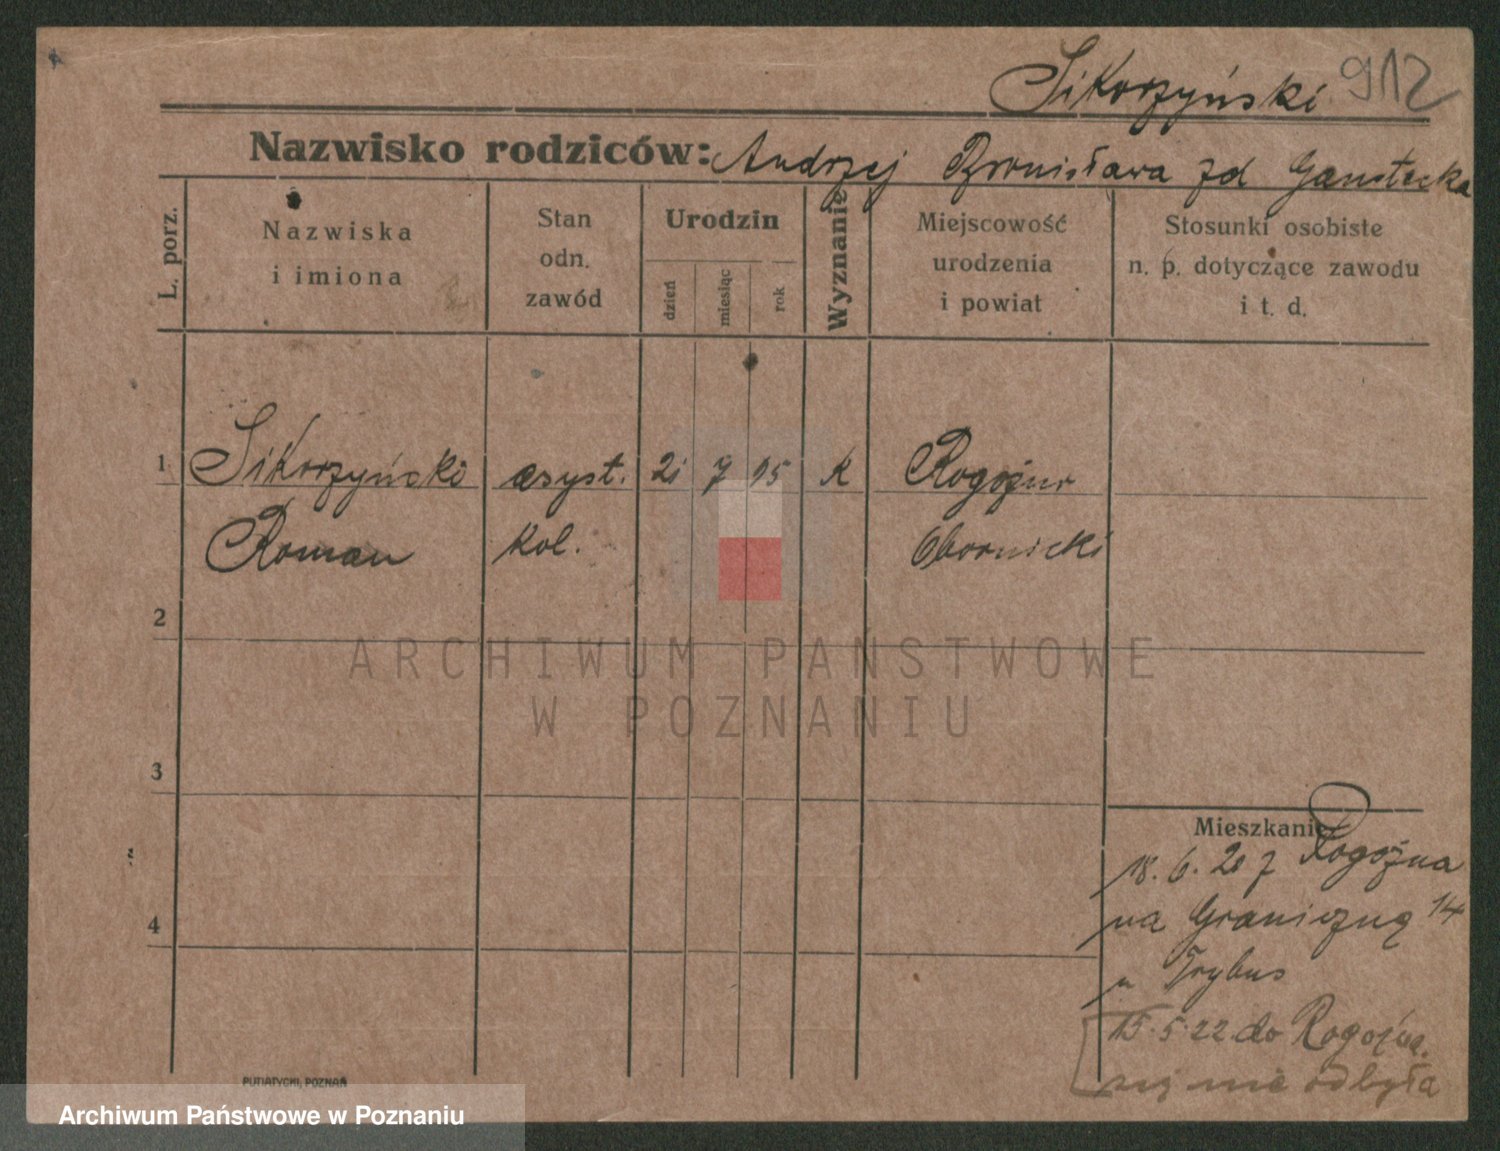 Sikorzyński 912
Nazwisko rodziców: Andrzej Bronisława zd
L. porz.
Nazwiska
i imiona
Stan
odn.
zawód
Urodzin
dzień
miesiąc
rok
Wyznanie
Miejscowość
urodzenia
i powiat
Stosunki osobiste
n. p. dotyczące zawodu
i t. d.
1 Sikorzyński asyst. 21 7 95 K Rogoźno
Roman kol. Obornicki
2
3
4
Mieszkanie
18. 6. 20 z Rogoźna
na Graniczną 14
u Trybus
15. 5. 22. do Rogoźna.
nie odbyła
PUTIATYCKI, POZNAŃ
ARCHIWUM PAŃSTWOWE
W POZNANIU
Archiwum Państwowe w Poznaniu